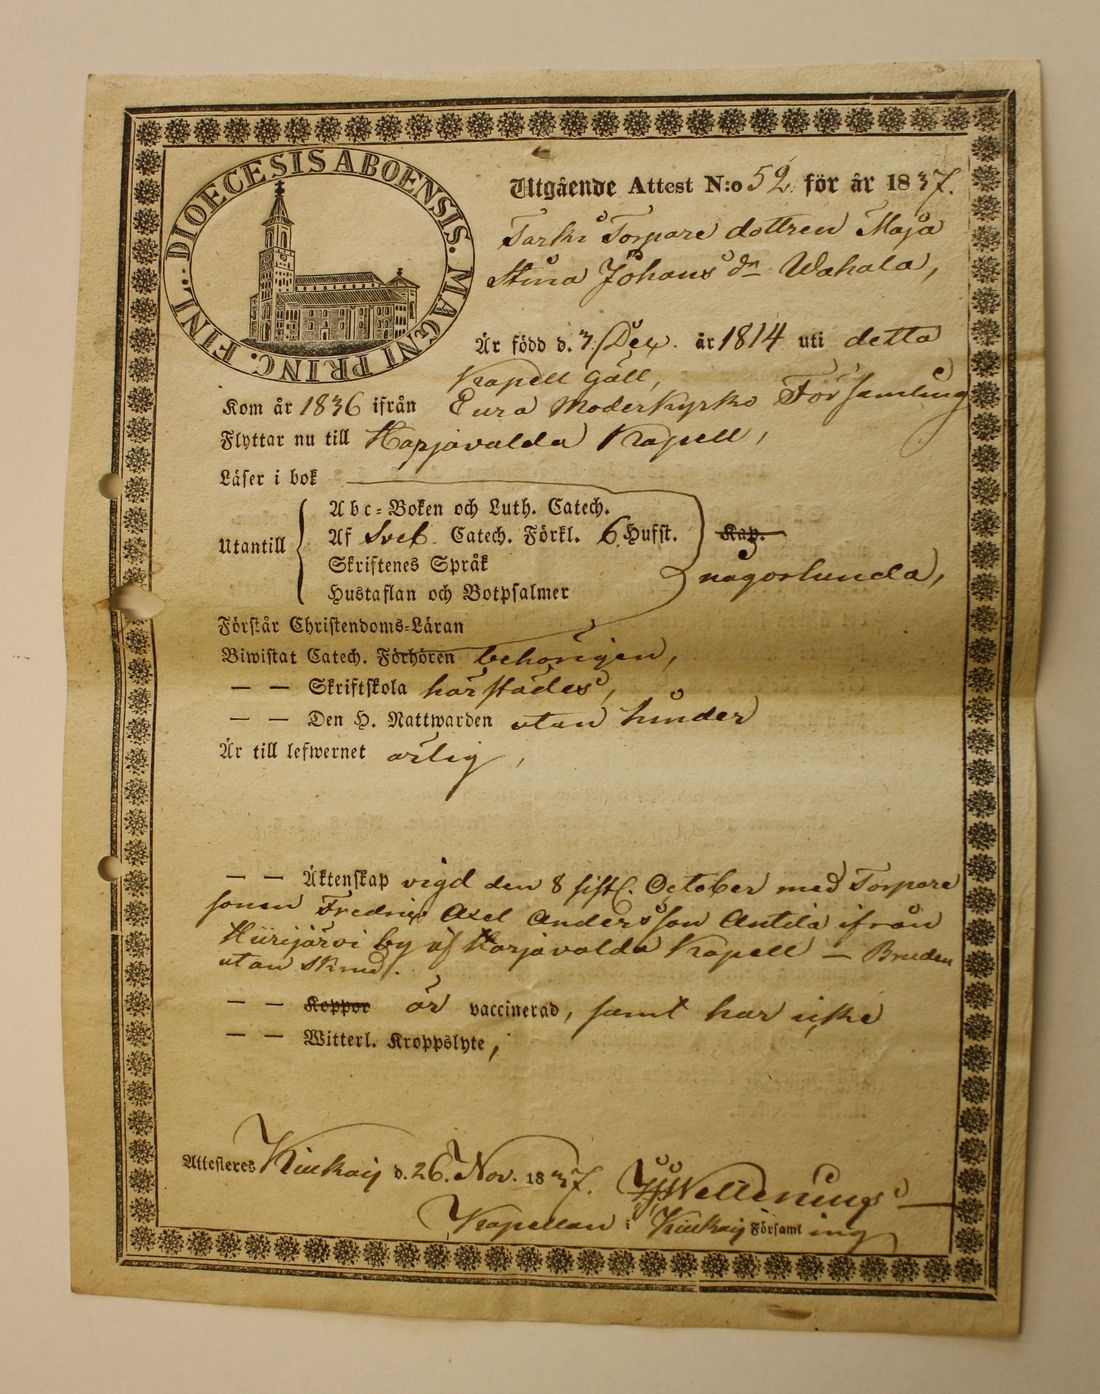 DIOECESIS ABOENSIS. MAGNI PRINC. FINL.
Utgående Attest N:o 52 för år 1837.
Torpare dottren Maja
Stina Johans dr Wahala,
Är född d. 7 Dec. år 1814 uti detta
Kapell Gäll,
Kom år 1836 ifrån Eura Moderkyrko Församling
Flyttar nu till Harjavalda Kapell,
Läser i bok
Utantill
Abc-Boken och Luth. Catech.
Af Sveb. Catech. Förkl. 6 Hufst.
Skriftenes Språk
Hustaflan och Botpsalmer
Kap.
någorlunda,
Förstår Christendoms-Läran
Biwistat Catech. Förhören behörigen,
— — Skriftskola härstädes,
— — Den H. Nattwarden utan hinder
Är till lefwernet ärlig,
— — Äktenskap vigd den 8 sistl. October med Torpare
sonen Fredric Axel Andersson Antila ifrån
Hiirijärvi by af Harjavalda Kapell — Bruden
utan skrud.
— — Koppor är vaccinerad, samt har icke
— — Witterl. Kroppslyte,
Attesteres Kiukais d. 26. Nov. 1837.
Kapellan i Kiukais Församling